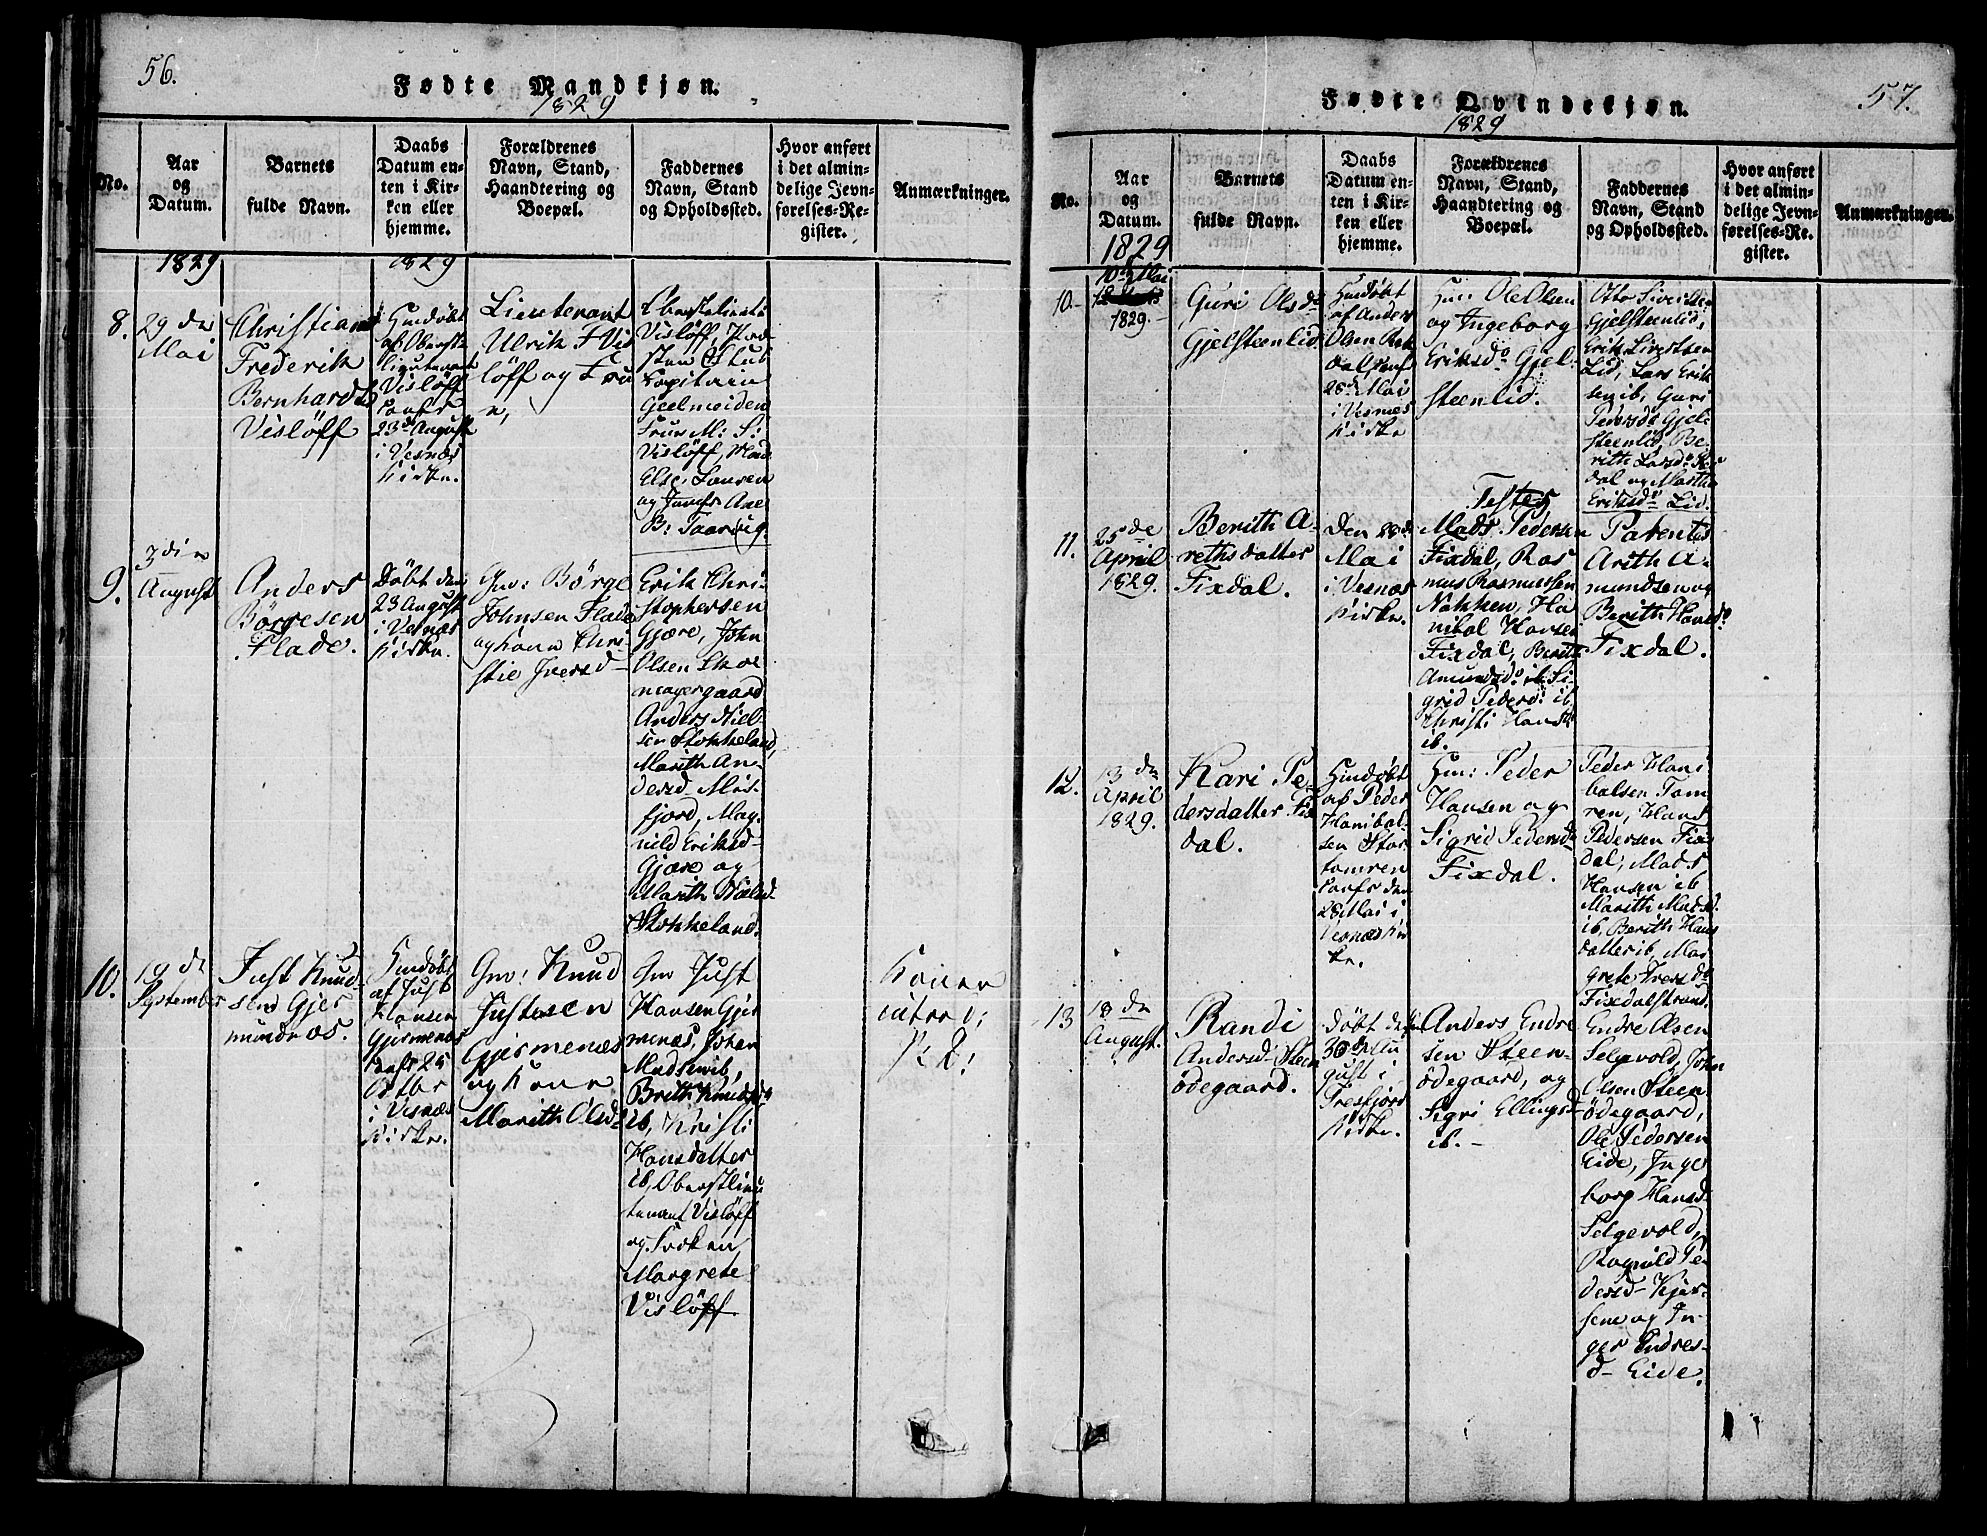 56.
Fødte Mandkjøn.
1829
No.
Aar
og
Datum.
Barnets
fulde Navn.
Daabs
Datum en-
ten i Kir-
ken eller
hjemme.
Forældrenes
Navn, Stand,
Haandtering og
Boepæl.
Faddernes
Navn, Stand
og Opholdssted.
Hvor anført
i det almin-
delige Jevn-
førelses-Re-
gister.
Anmærkninger.
1829
1829
8.
29 de
Mai
Christian
Frederik
Bernhardt
Vislöff
Hmdöbt
af Oberst-
lieutenant
Vislöff
Confr
23 de August
i Vesnæs
Kirke.
Lieutenant
Ulrik F Vis
löff og Fru
Vislöff
Capitain
Geelmeiden
Frue M: S:
Vislöff, Mad
Else Lausen
og Jomfr
9.
3 die
August
Anders
Börgesen
Flade.
Döbt den
23 August
i Vesnæs
Kirke.
Gm: Börge
Johnsen Flade
og kone Chri-
stie Iversd-
Erik Chri-
stophersen
Gjære, John
Olsen
Anders Niel-
sen Stokkeland,
Marith An-
dersd- Mis-
fjord, Mag-
nild Eriksd-
Gjære og
Marith Nielsd-
Stokkeland.
10.
19 de
September
Just Knud-
sen Gjer
mundnæs.
Hmdöbt
af Just
Hansen
Gjermenæs
Confr 25
Octbr
i Vesnæs
Kirke.
Gm: Knud
Justesen
Gjermenæs
og Kone
Marith Olsd-
Gm Just
Hansen Gjer
menæs, Johan
Madsen ib,
Brith Knudsd
ib, Kristi
Hansdatter
ib, Oberstlieu
tenant Vislöff
og Fröken
Margrete
Vislöff
Konen
introd:
57.
Fødte Qvindekjøn.
1829
No.
Aar
og
Datum.
Barnets
fulde Navn.
Daabs
Datum en-
ten i Kir-
ken eller
hjemme.
Forældrenes
Navn, Stand,
Haandtering og
Boepæl.
Faddernes
Navn, Stand
og Opholdssted.
Hvor anført
i det almin-
delige Jevn-
førelses-Re-
gister.
Anmærkninger.
1829
10.-
10 de Mai
1829.-
Guri Olsd-
Gjelsteenlid
Hmdöbt
af Anders
Olsen
dal, Confr
28 de Mai
i Vesnæs
Kirke
Gm: Ole Olsen
og Ingeborg
Eriksd- Gjel-
steenlid.
Otto Sivertsen
Gjelsteenlid,
Erik Sivertsen
Lid, Lars Erik
sen ib, Guri
Pedersd- Gjel-
steenlid, Be-
rith Larsd-
dal og Marthe
Eriksd- Lid.
11.
25 de
April
1829.
Berith A-
rethsdatter
Fixdal.
Den 28 de
Mai
i Vesnæs
Kirke.
Testes
Mads Pedersen
Fixdal, Ras
mus Rasmussen
Nakken, Ha
nibal Hansen
Fixdal, Berith
Amundsd- ib, Si-
grid Pedersd- ib,
Christi Hansd-
ib.
Parentes
Arith A-
mundsen og
Berith Hansd-
Fixdal.
12.
13 de
April
1829.
Kari Pe-
dersdatter Fix
dal.
Hmdöbt
af Peder
Hanibal-
sen Stor
tomren
Confr den
28 Mai i
Vesnæs Kir
ke.
Gm: Peder
Hansen og
Sigrid Pedersd-
Fixdal.
Peder Hani
balsen Tom
ren, Hans
Pedersen Fix
dal, Mads
Hansen ib
Marith Madsd-
ib, Berith Hans
datter ib, Mar
grete Iversd-
Fixdalstrand.
13
18 de
August.
Randi
Andersd- Steen
ödegaard.
Döbt den
30 de Au
gust i
Tresfjord
Kirke.
Anders Endre
sen Steen-
ödegaard, og
Sigri Ellingsd-
ib.-
Endre Olsen
Selgevold, John
Olsen Steen
ödegaard,
Ole Pedersen
Eide, Inge
borg Hansd-
Selgevold,
Ragnild Pe-
dersd- Kjer-
sene og In-
ger Endres-
d- Eide.